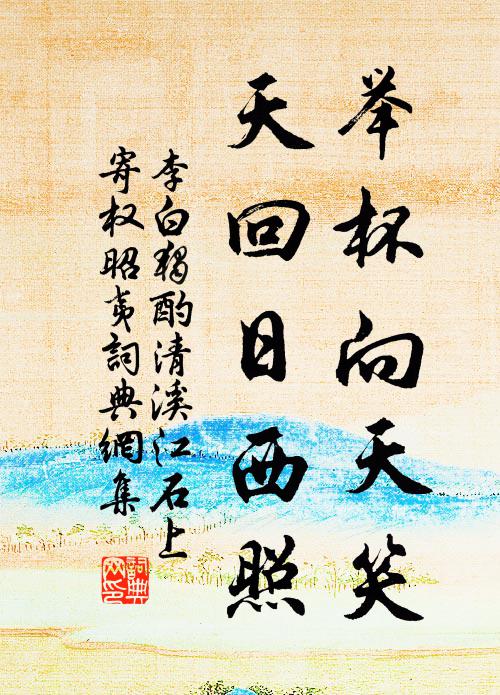 举杯向天笑
天回日西照
李白独酌清溪江石上
寄权昭夷詞典網集
詞典网印